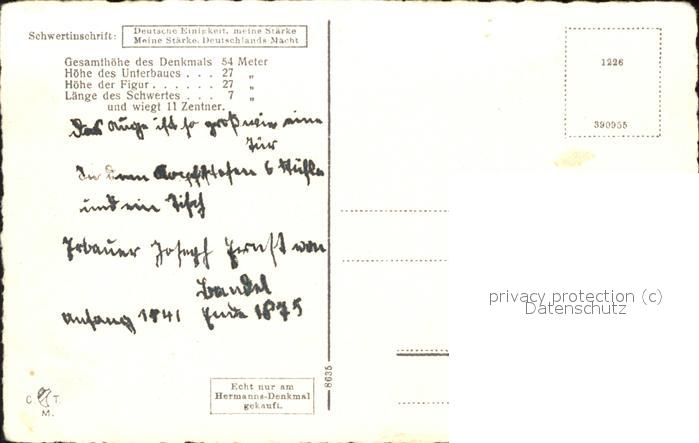 Schwertinschrift:
Deutsche Einigkeit, meine Stärke
Meine Stärke, Deutschlands Macht
Gesamthöhe des Denkmals 54 Meter
Höhe des Unterbaues . . . 27 „
Höhe der Figur . . . . . . 27 „
Länge des Schwertes . . . 7 „
und wiegt 11 Zentner.
Das Auge ist so groß wie eine
Tür
In dem stehen 6 Stühle
und ein Tisch
Erbauer Joseph Ernst von
Bandel
Anfang 1841 Ende 1875
1226
390955
privacy protection (c)
Datenschutz
8635
Echt nur am
Hermanns-Denkmal
gekauft.
C T.
M.